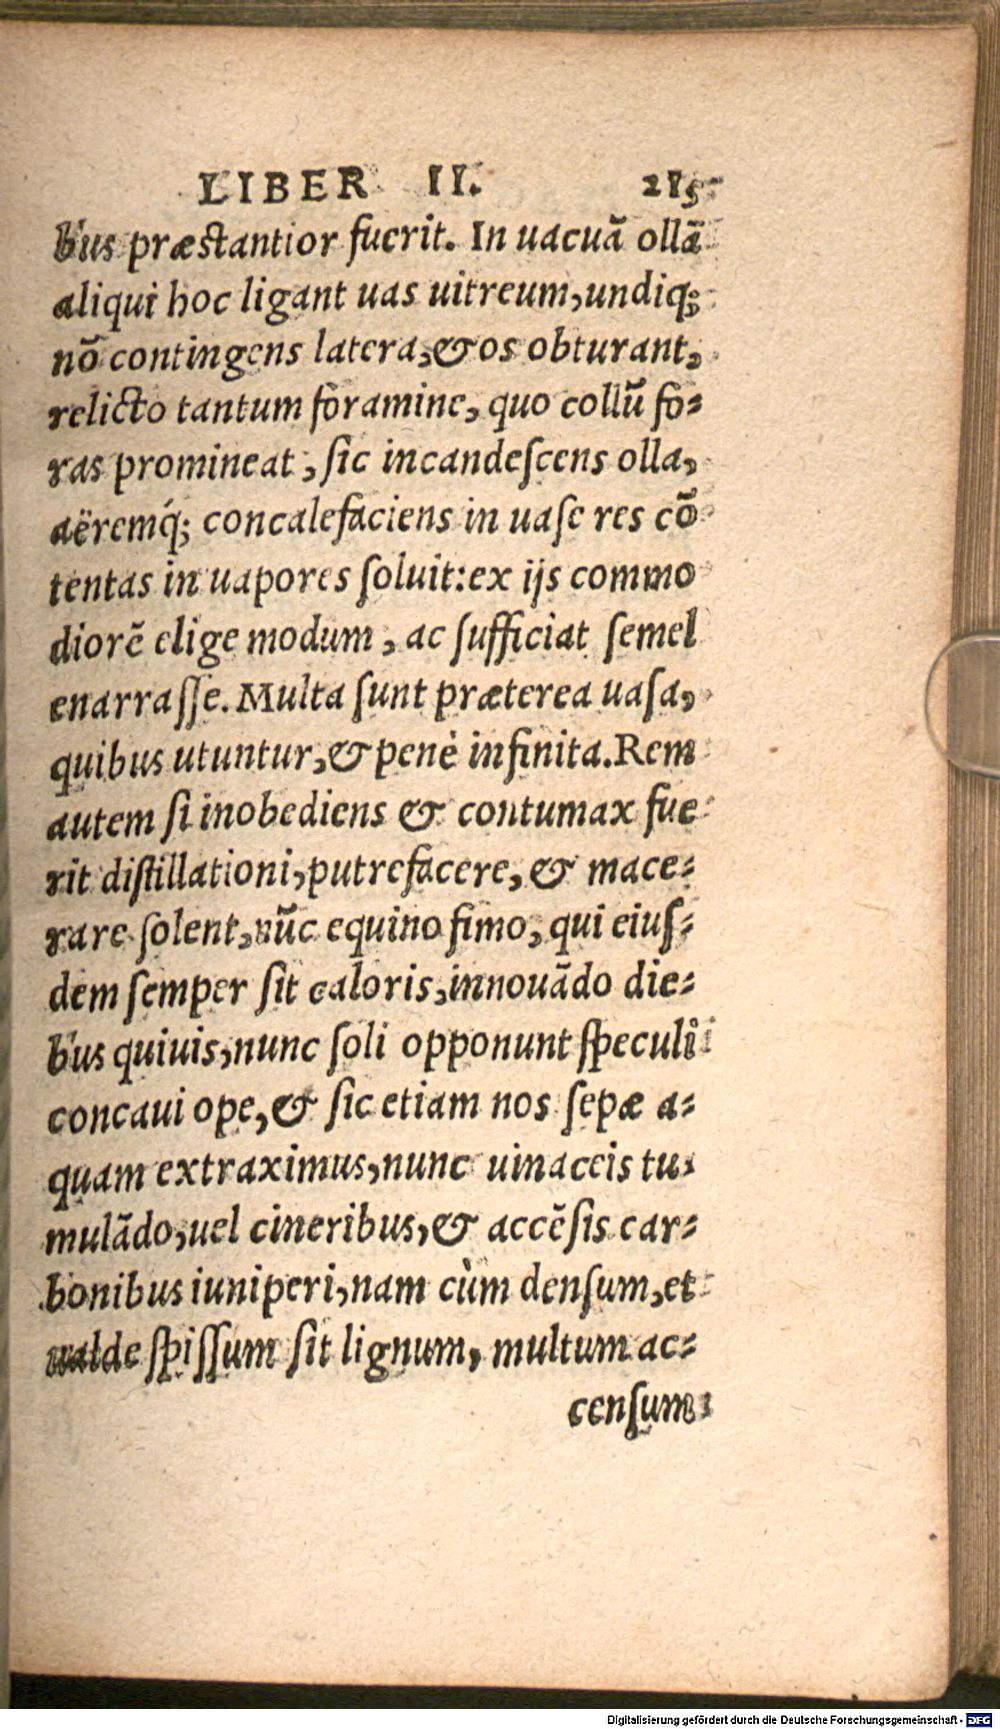 LIBER II. 215
bus præstantior fuerit. In uacuā ollā
aliqui hoc ligant uas uitreum, undiq;
nō contingens latera, & os obturant,
relicto tantum foramine, quo collū fo-
ras promineat, sic incandeſcens olla,
aëremq́; concalefaciens in uaſe res cō
tentas in uapores ſoluit: ex ijs commo
diorē elige modum, ac ſufficiat ſemel
enarraſſe. Multa ſunt præterea uaſa,
quibus utuntur, & penè infinita. Rem
autem ſi inobediens & contumax fue
rit diſtillationi, putrefacere, & mace-
rare ſolent, nūc equino fimo, qui eiuſ-
dem ſemper ſit caloris, innouādo die-
bus quiuis, nunc ſoli opponunt ſpeculi
concaui ope, & ſic etiam nos ſepæ a-
quam extraximus, nunc uinaceis tu-
mulādo, uel cineribus, & accēſis car-
bonibus iuniperi, nam cùm denſum, et
ualde ſpiſſum ſit lignum, multum ac-
cenſum
Digitalisierung gefördert durch die Deutsche Forschungsgemeinschaft - DFG